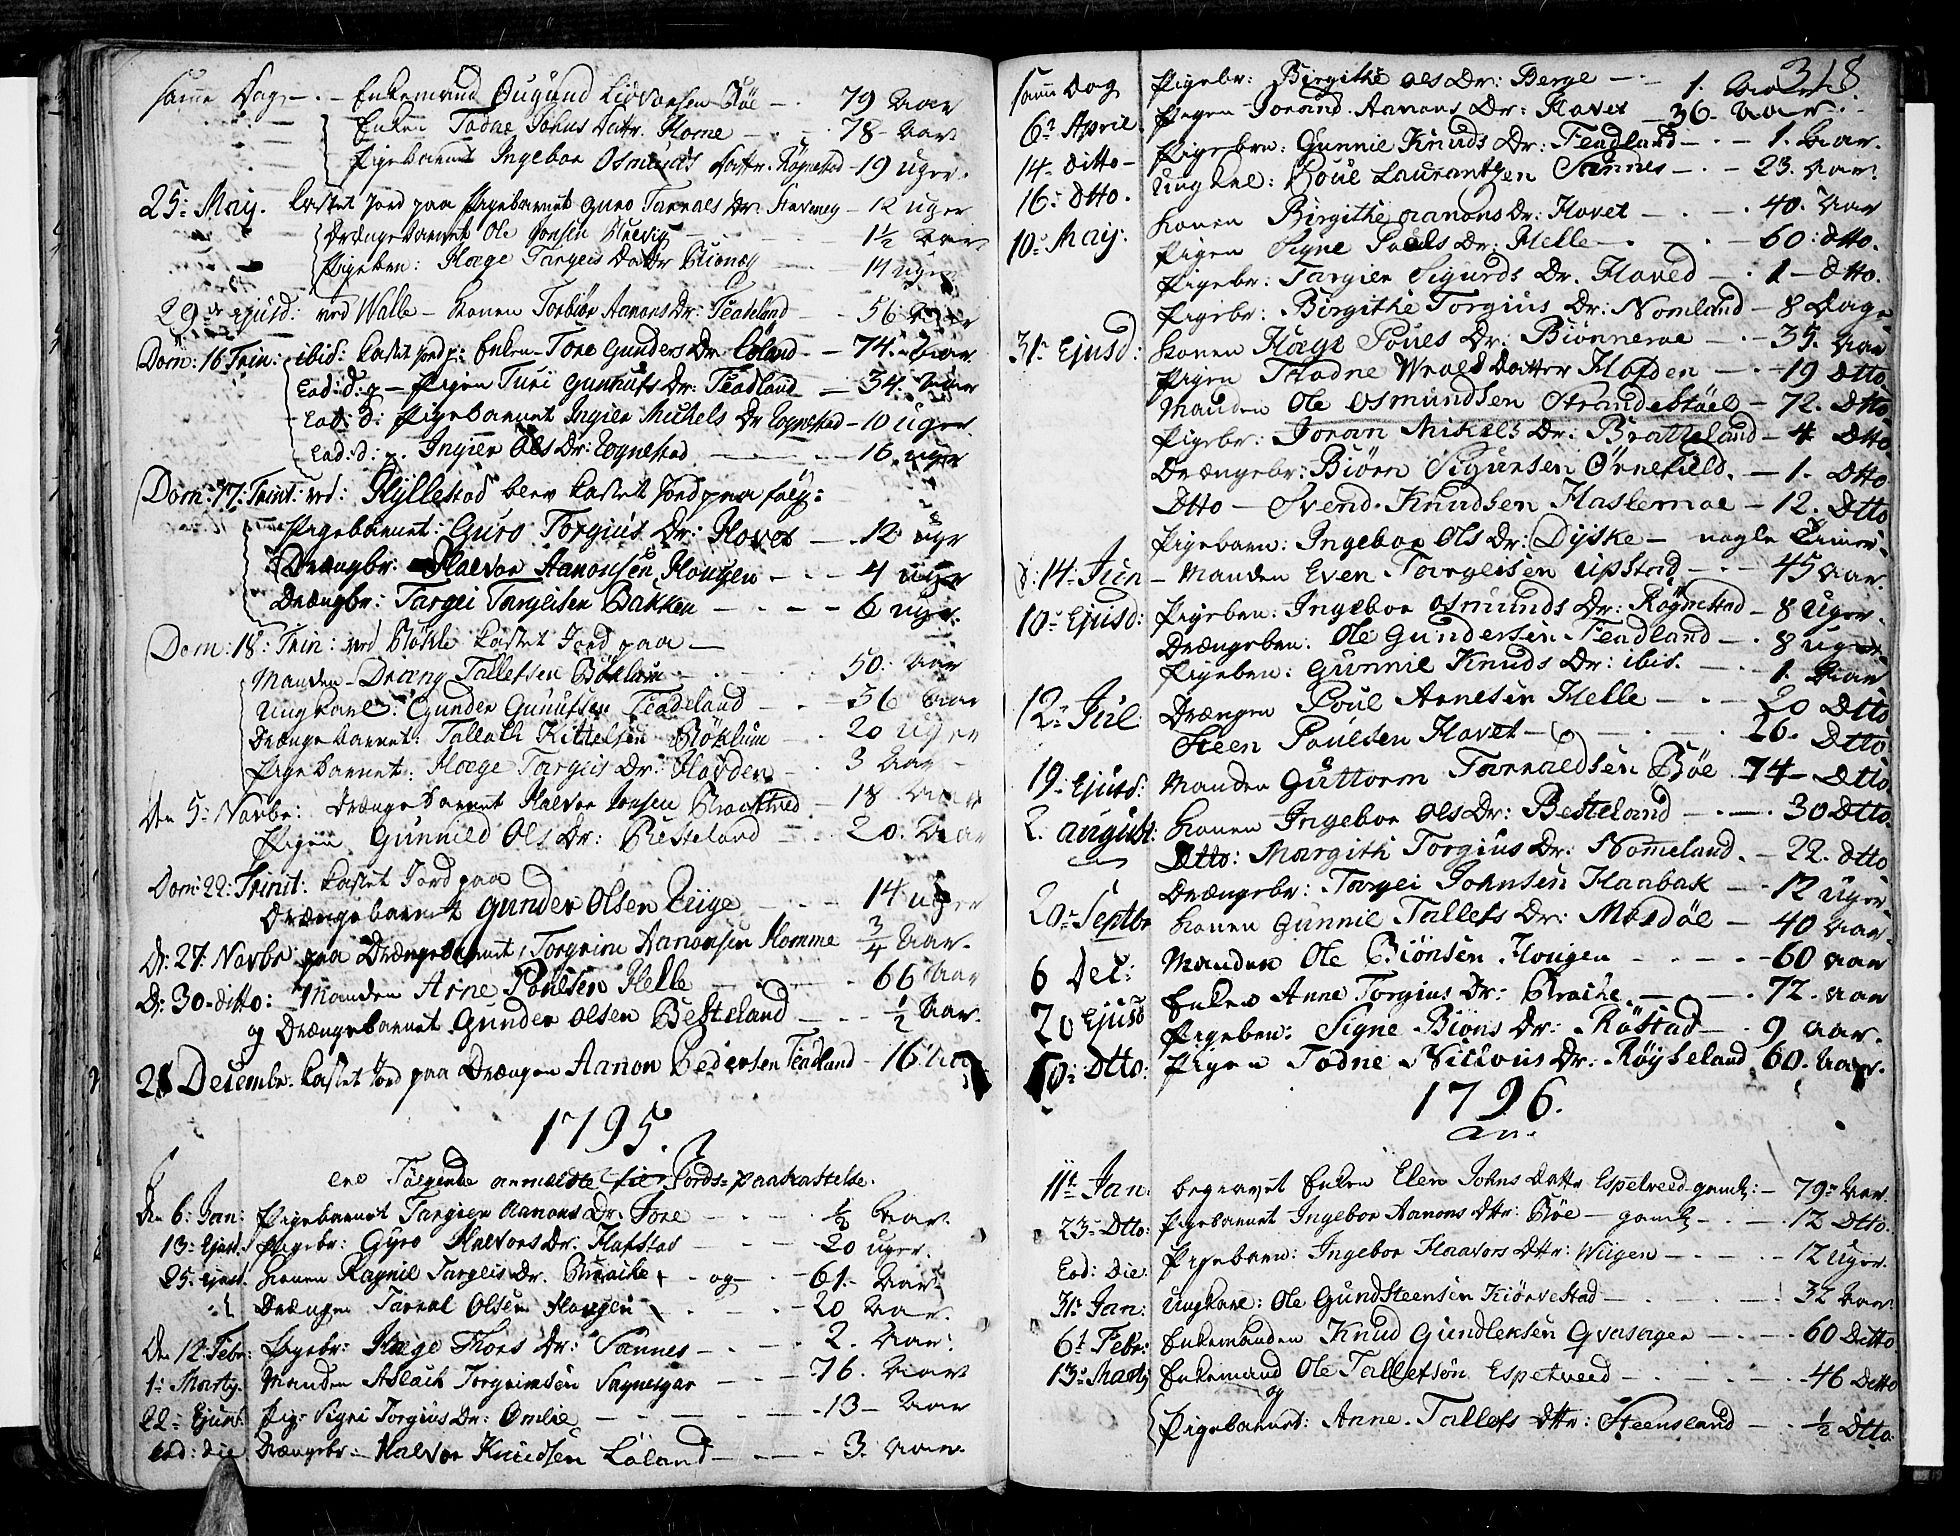 samme Dag - Enkemand Øugund Lidvorsen Bøe - 79 Aar
Enken Todne Johns Dattr. Home - 78 Aar
Pigebarnet Ingebor Osmunds Dattr. Røgnestad - 19 uger.
25: Maij. kastet Jord paa Pigebarnet Guro Tarralds Dr: - 12 uger
Drængebarnet Ole Jonsen - 1½ Aar
Pigebn: Hæge Targeis Dattr - 14 uger
29de ejusd: ved Walle - Konen Torbiør Aanons Dr: Feadeland - 56 Aar
Dom: 16 Trin: ibid: kastet Jord p: Enken Tore Gunders Dr. Løland - 74 Aar
Ead: d: p - Pigen Turi Gunnufs Dr: Feadland - 34 Aar
Ead: d: Pigebarnet Ingier Michels Dr Rognestad - 10 uger
Ead: d: p. Ingier Ols Dr: Rognestad - 16 uger
Dom: 17: Trint: ved: Hyllestad blev kastet Jord paa følg:
Pigebarnet: Guro Torgius Dr: Hovet - 12 ugr
Drængbr: Halvor Aanonsen Hougen - 4 uger
Drængbr: Targei Targeisen Bakken - 6 uger.
Dom: 18: Trin: ved Bøkle kastet Jord paa -
Manden - Dreng Tallefsen Bøklum - 50: Aar
Ungkarl: Gunder Gunufsen Feadeland - 36 Aar
Drængebarnet: Tallach Kittelsen Bøklum - 20 Uger
Pigebarnet: Hæge Targeis Dr: Hovden - 3 Aar
den 5: Novbr: Drængebarnet Halvor Jonsen - 18
Pigen Gunnild Ols Dr: Besteland - 20. Aar
Dom: 22: Trinit: kastet Jord paa
Drængebarnet Gunder Olsen Riige - 14 uger
D: 27: Novbr paa Drængebarnet Torgrim Aanonsen Homme ¾ Aar.
D: 30 ditto: Manden Arne Poulsen Helle - 66 Aar
og Drængebarnet Gunder Olsen Besteland - ½ Aar.
Decembr. kastet Jord paa Drængen Aanon Pedersen Feadland - 16
1795.
ere Følgende anmeldte til Jords-paakastelse.
Den 6: Jan: Pigebarnet Targier Aanons Dr. - ½ Aar.
13: Ejusd. Pigebr: Gyro Halvors Dr. Hafstad - 20 uger.
25. Ejusd. Konen Ragnil Targeis Dr. Brache - og - 61 Aar
Drængen Tarral Olsen Hougen - 20 Aar.
Den 12 Febr: Pigebr: Hæge Thors Dr: Sannes - 2. Aar:
1: Martij. Manden Aslach Torgrimsen - 76. Aar
22: Ejusd. Pig: Signi Torgius Dr: Omlie - 13 Aar
ead: die Drængebr: Halvor Knudsen Løland - 3. Aar.
318
samme Dag Pigebr: Birgithe Ols Dr: Berge - 1. Aar
6: April Pigen Jorand Aanons Dr: Hovet - 36 Aar.
14 ditto - Pigebrn: Gunnil Knuds Dr: Feadland - 1. Aar.
16: Dto. Ungkarl: Poul Laurantzen Sannes - 23. Aar.
Konen Birgithe Aanons Dr: Hovet - 40. Aar
10: Maij: Pigen Signe Pouls Dr: Helle - 60: dtto.
Pigebr: Targier Sigurds Dr. Hoved - 1 - dtto.
Pigebr: Birgithe Torgius Dr: Nomland - 8 Dage
31: Ejusd: Konen Hæge Pouls Dr: Biønneraae - 35. Aar
Pigen Hadne Wrals Datter Hofden - 19 dtto
Manden Ole Osmundsen Strandestøel - 72. Dtto
Pigebr: Joran Mikels Dr: Bratteland - 4 Dtto
Drængebr: Biørn Sigursen Ørnefield. - 1. Dtto
Dtto - Svend Knudsen Haslemoe - 12. Dtto
Pigebarn: Ingebor Ols Dr: Dyske - nogle Timer.
d: 14: Jun - Manden Even Targeisen Upstad - 45 Aar.
10: Ejusd: Pigebn: Ingebor Osmunds Dr: Røgnestad - 8 Uger.
Drængebn: Ole Gundersen Feadland - 8 uger.
Pigebn: Gunnil Knuds Dr: ibid. - 1. Aar
12: Jul Drængen Poul Arnesen Helle - 20 Dtto
Steen Poulsen Hovet - 26. Dtto
19: Ejusd: Manden Guttorm Tarraldsen Bøe 74 - Dtto
2. August: Konen Ingebor Ols Dr: Besteland - 30 Dtto.
Dtto: Margith Torgius Dr: Nomeland. - 22. dtto
Drængebr: Targei Johnsen Haabak - 12 uger.
20: Septbr Konen Gunnil Tallefs Dr: Mosdøl - 40 Aar
6 Det: Manden Ole Biønsen Hougen - 60 Aar
Enken Anne Torgius Dr: Brache - 72. Aar
20 Ejusd Pigebn: Signe Biøns Dr: Røstad - 9 Aar.
Dtto: Pigen Todne Nielvus Dr: Røyseland 60. Aar.
1796.
an.
11t Jan: begravet Enken Elen Johns Dattr Espetveed gaml: - 79 Aar.
23: Dtto: Pigebarnet Ingebor Aanons Dttr: Bøe - gaml - 12 Dtto.
Ead: Die: Pigebarn: Ingebor Haavors Dttr: Wiigen - 12 uger.
31: Jan: Ungkarl: Ole Gundsteensen Kiørvestad - 32 Aar
6t Febr: Enkemanden Knud Gundleksen - 60 Ditto
13: Martj Enkemand Ole Tallefsøn Espetveed - 46 Ditto
og
Pigebarnet: Anne Tallefs Dttr: Steensland - ½ Dtto.